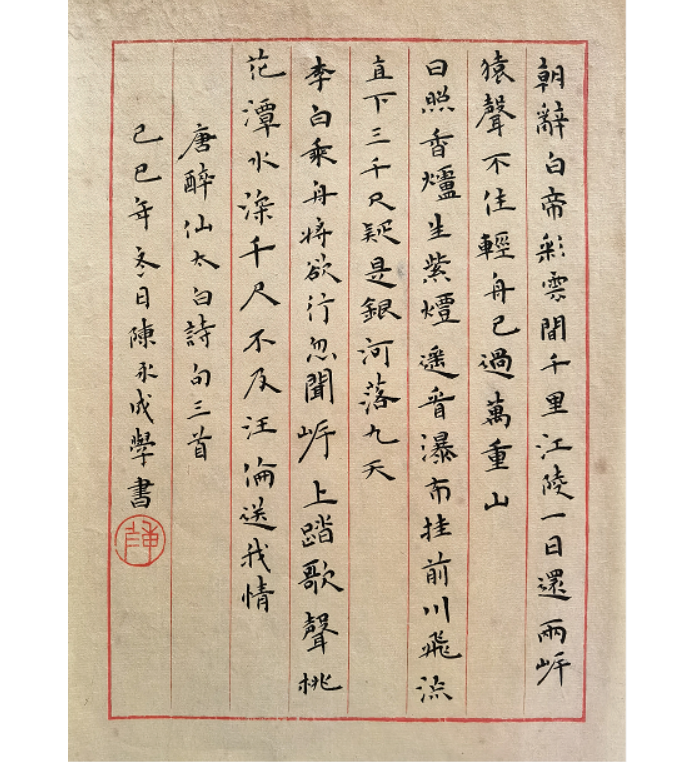 朝辭白帝彩雲間千里江陵一日還兩岍
猿聲不住輕舟已過萬重山
日照香爐生紫煙遥看瀑布挂前川飛流
直下三千尺疑是銀河落九天
李白乘舟將欲行忽聞岍上踏歌聲桃
花潭水深千尺不及汪倫送我情
唐醉仙太白詩句三首
己巳年冬日陳永成學書
陳